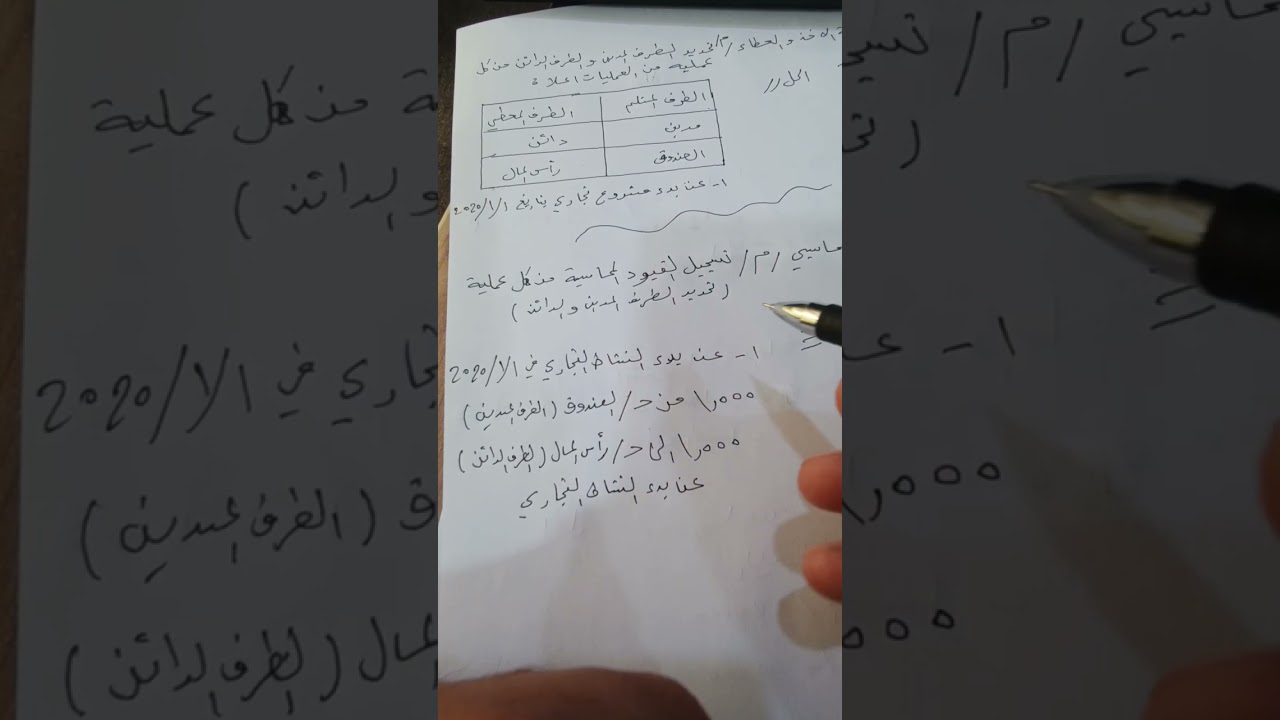 الاخذ والعطاء /م/ تحديد الطرف المدين والطرف الدائن من كل
عملية من العمليات اعلاه
الحل
الطرف المستلم الطرف المعطي
مدين دائن
الصندوق رأس المال
١- عن بدء مشروع تجاري بتاريخ ١/١/2020
محاسبي /م/ تسجيل القيود المحاسبية من كل عملية
(تحديد الطرف المدين والدائن)
١- عن بدء النشاط التجاري في ١/١/2020
١,٠٠٠ من حـ/ الصندوق (الطرف المدين)
١,٠٠٠ الى حـ/ رأس المال (الطرف الدائن)
عن بدء النشاط التجاري